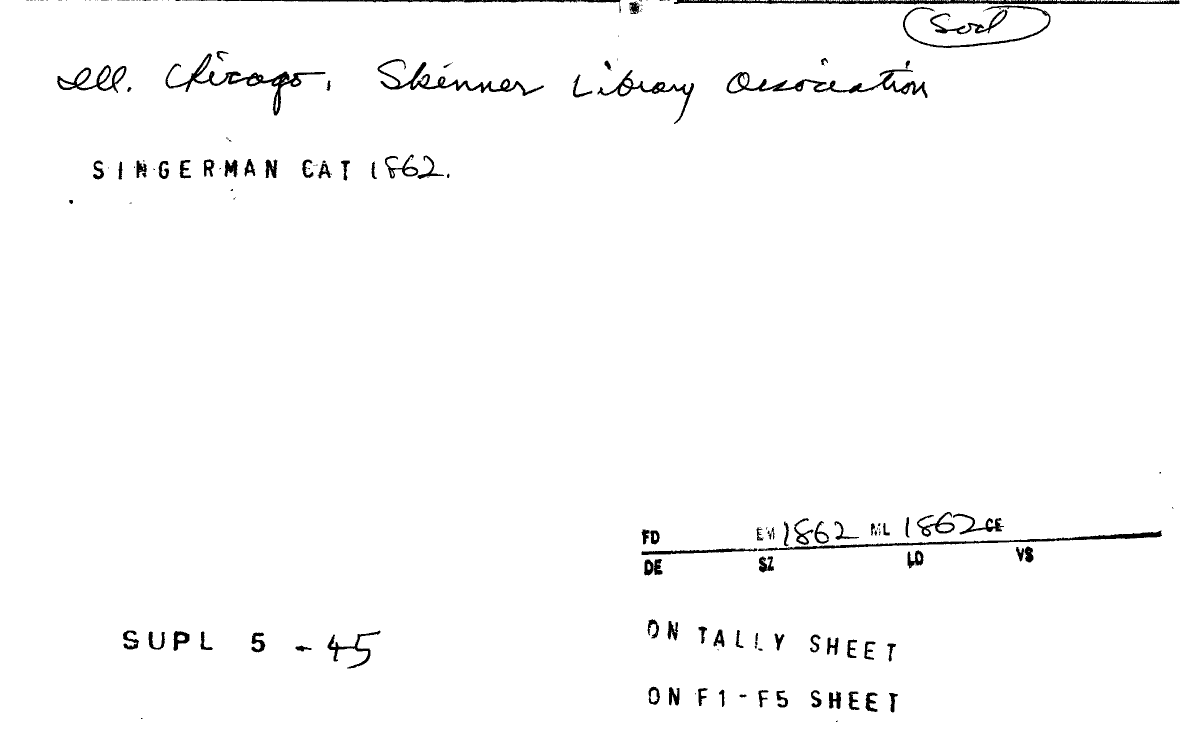 Socl
Ill. Chicago, Skinner Library Association
SINGERMAN CAT 1862.
FD EM 1862 ML 1862 CE
DE SZ LD VS
SUPL 5 - 45
ON TALLY SHEET
ON F1-F5 SHEET